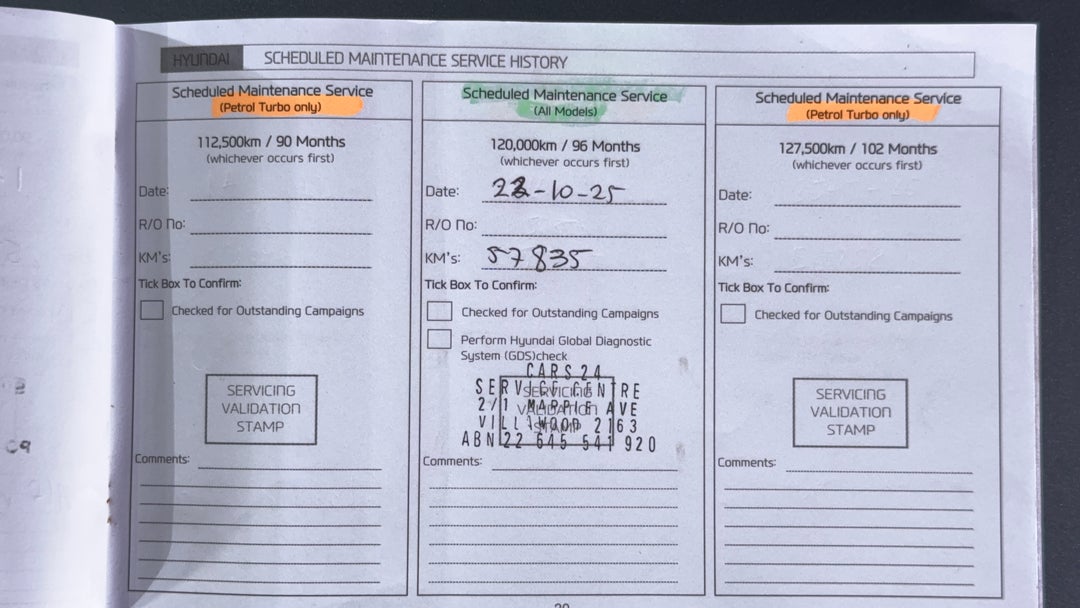 HYUNDAI SCHEDULED MAINTENANCE SERVICE HISTORY
Scheduled Maintenance Service
(Petrol Turbo only)
112,500km / 90 Months
(whichever occurs first)
Date:
R/O No:
KM's:
Tick Box To Confirm:
Checked for Outstanding Campaigns
SERVICING
VALIDATION
STAMP
Comments:
Scheduled Maintenance Service
(All Models)
120,000km / 96 Months
(whichever occurs first)
Date: -10-25
R/O No:
KM's: 57835
Tick Box To Confirm:
Checked for Outstanding Campaigns
Perform Hyundai Global Diagnostic
System (GDS)check
CARS24
SERVICE CENTRE
SERVICING
2/1 MARPLE AVE
VALIDATION
VILLAWOOD 2163
STAMP
ABN 22 645 541 920
Comments:
Scheduled Maintenance Service
(Petrol Turbo only)
127,500km / 102 Months
(whichever occurs first)
Date:
R/O No:
KM's:
Tick Box To Confirm:
Checked for Outstanding Campaigns
SERVICING
VALIDATION
STAMP
Comments: